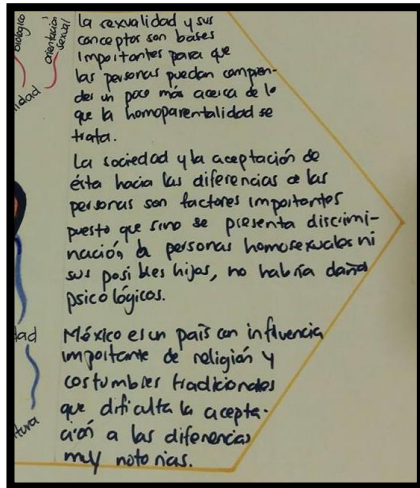 biológico
orientación
sexual
idad
la sexualidad y sus
conceptos son bases
importantes para que
las personas puedan compren-
der un poco más acerca de lo
que la homoparentalidad se
trata.
La sociedad y la aceptación de
ésta hacia las diferencias de las
personas son factores importantes
puesto que sino se presenta discrimi-
nación a personas homosexuales ni
sus posibles hijos, no habría daños
psicológicos.
dad
México es un país con influencia
importante de religión y
costumbres tradicionales
que dificulta la acepta-
ción a las diferencias
muy notorias.
tura